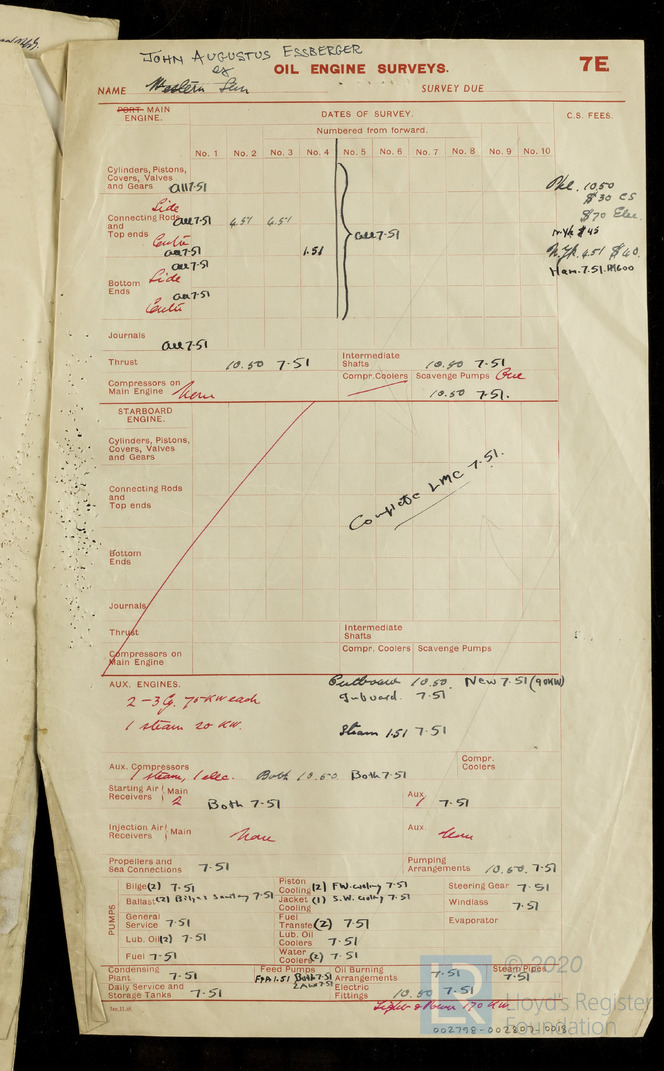 JOHN AUGUSTUS ESSBERGER
ex
OIL ENGINE SURVEYS.
7E
NAME Western Sun
SURVEY DUE
PORT MAIN ENGINE.
DATES OF SURVEY.
C.S. FEES.
Numbered from forward.
No. 1 No. 2 No. 3 No. 4 No. 5 No. 6 No. 7 No. 8 No. 9 No. 10
Cylinders, Pistons,
Covers, Valves
and Gears all 7.51
Phl. 10.50
$30 CS
$70 Elec.
N.Yk $45
N.Yk. 4.51 $40.
Ham. 7.51.
Side
Connecting Rods all 7.51 4.51 4.51
and
Top ends
all 7.51
Centre
all 7.51 1.51
all 7.51
Bottom Side
Ends all 7.51
Centre
Journals all 7.51
Thrust 10.50 7.51
Intermediate
Shafts 10.50 7.51
Compressors on
Main Engine None
Compr. Coolers
Scavenge Pumps One
10.50 7.51.
STARBOARD
ENGINE.
Cylinders, Pistons,
Covers, Valves
and Gears
Complete LMC 7.51.
Connecting Rods
and
Top ends
Bottom
Ends
Journals
Thrust
Intermediate
Shafts
Compressors on
Main Engine
Compr. Coolers
Scavenge Pumps
AUX. ENGINES.
Outboard 10.50. New 7.51 (90KW)
2 - 3G. 75KW each
Inboard. 7.51
1 steam 20 KW.
Steam 1.51 7.51
Aux. Compressors
1 steam, 1 elec. Both 10.50 Both 7.51
Compr.
Coolers
Starting Air
Receivers
Main
2 Both 7.51
Aux.
1 7.51
Injection Air
Receivers
Main None
Aux. None
Propellers and
Sea Connections 7.51
Pumping
Arrangements 10.50. 7.51
PUMPS
Bilge (2) 7.51
Piston
Cooling (2) F.W. Cooling 7.51
Steering Gear 7.51
Ballast (2) Bilge & Sanitary 7.51
Jacket (1) S.W. Cooling 7.51
Cooling
Windlass 7.51
General
Service 7.51
Fuel
Transfer (2) 7.51
Evaporator
Lub. Oil (2) 7.51
Lub. Oil
Coolers 7.51
Fuel 7.51
Water
Coolers (2) 7.51
Condensing
Plant 7.51
Feed Pumps
Both 7.51
Oil Burning
Arrangements 7.51
Steam Pipes
7.51
Daily Service and
Storage Tanks 7.51
Electric
Fittings 10.50 7.51
Light & Power 170 KW.
© 2020
LR
Lloyd's Register
Foundation
002798-002807-0018